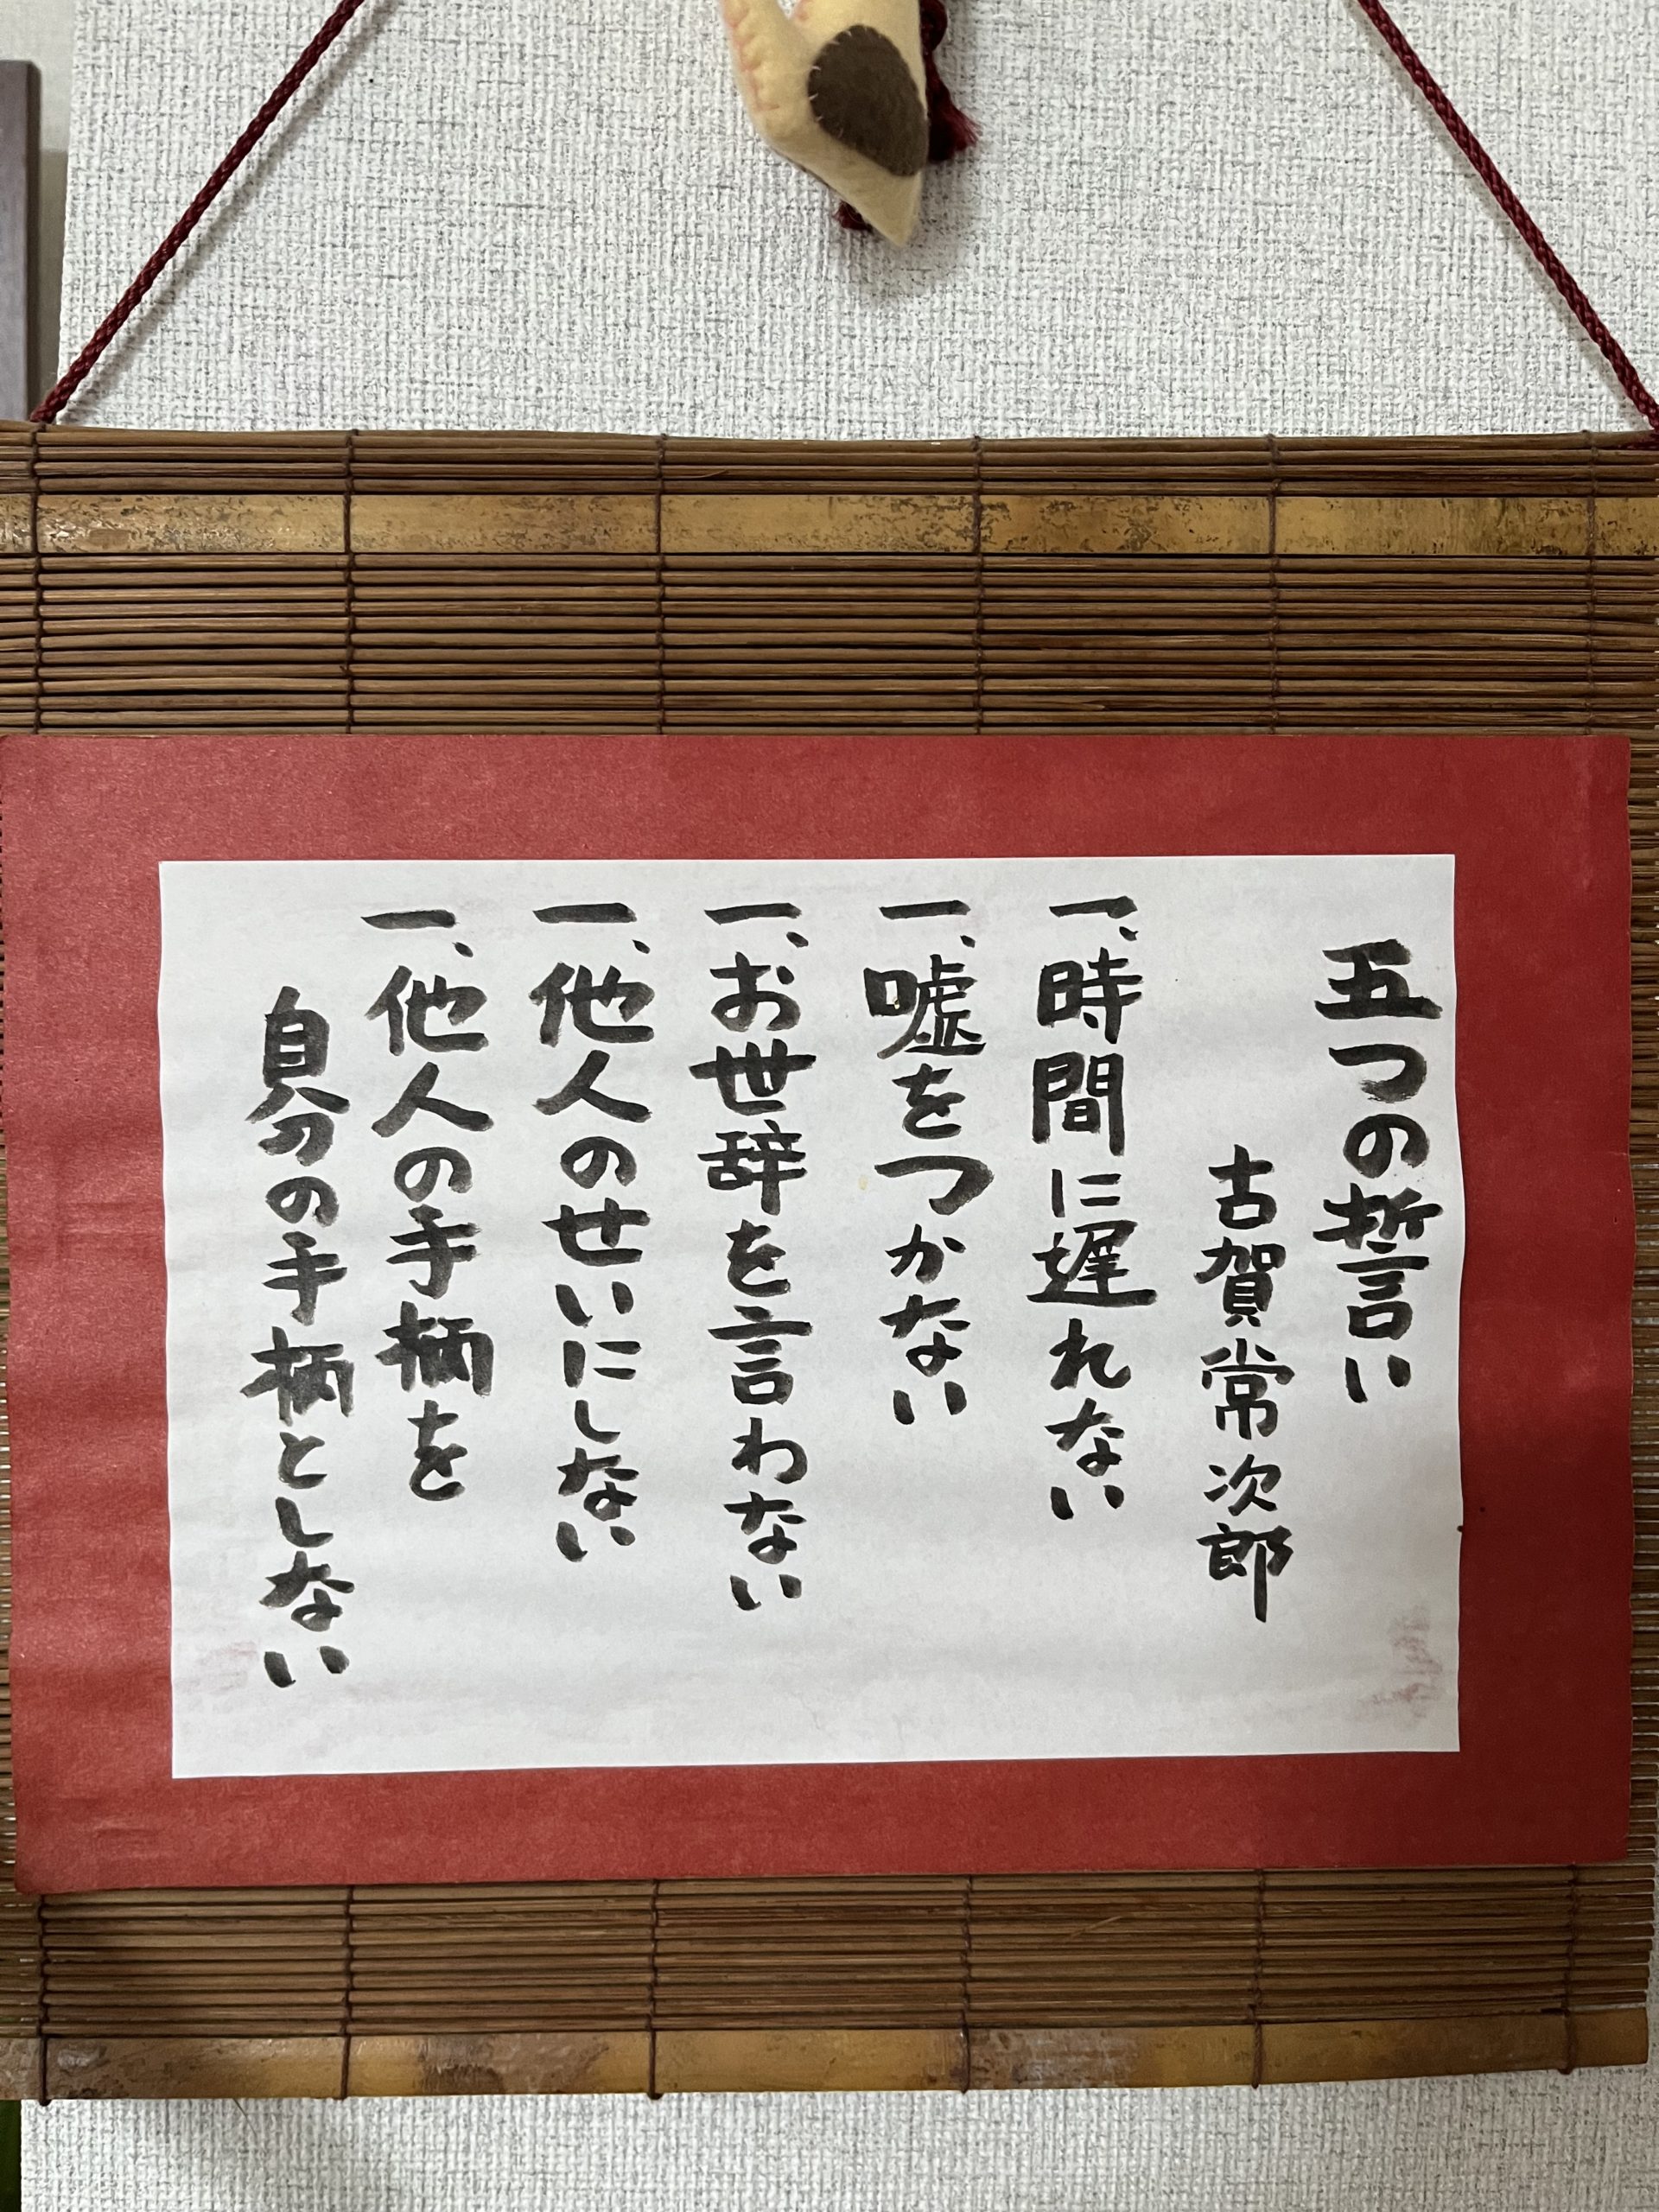 五つの誓い
古賀常次郎
一、時間に遅れない
一、嘘をつかない
一、お世辞を言わない
一、他人のせいにしない
一、他人の手柄を
自分の手柄としない